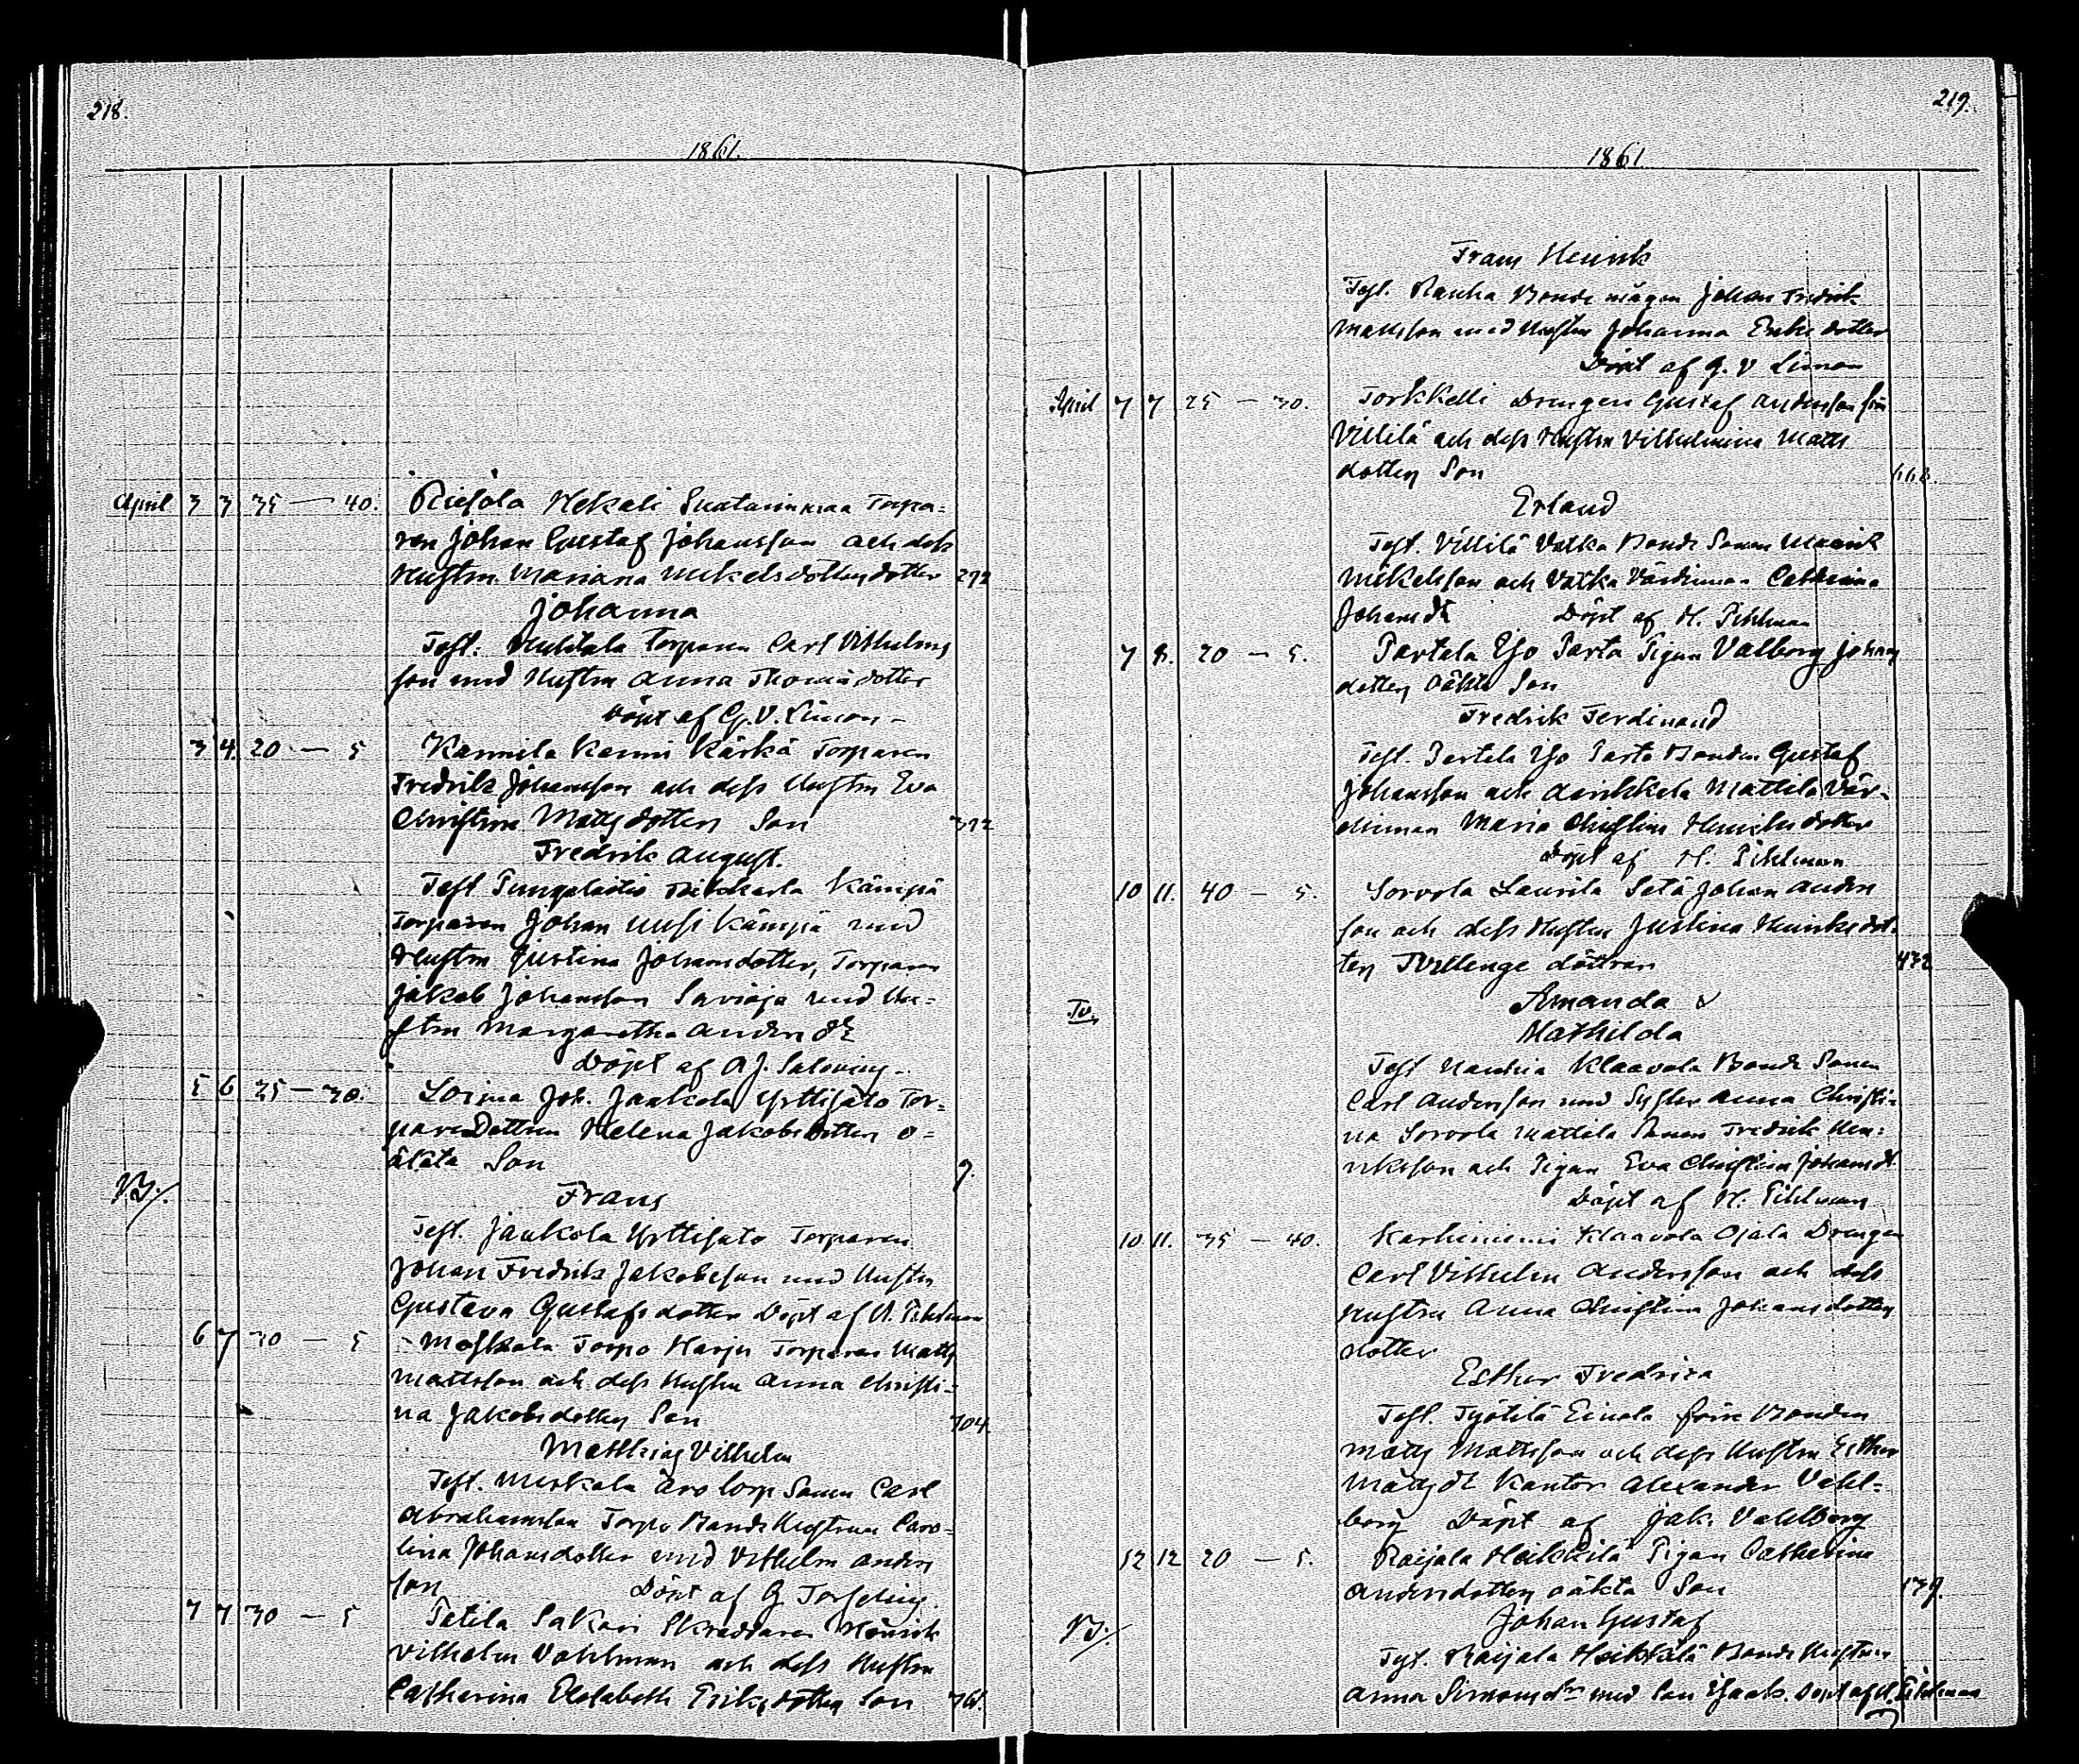 218.
1861.
April 3 3 35 — 40. Riesola Hekali Suatarinmaa Torpa=
ren Johan Gustaf Johansson och dess
Hustru Mariana Mikelsdotters dotter 292
Johanna
Test: Huhtala torparen Carl Vilhelms
son med Hustru Anna Thomædotter
Döpt af G. V. Limon
3 4. 20 — 5 Karmila Karmi Kärkä Torparen
Fredrik Johansson och dess Hustru Eva
Christina Mattsdotters Son 392
Fredrik August.
Test Kämpä
Torparen Johan Uusi Kämpä med
Hustru Justina Johansdotter, Torparen
Jakob Johansson Savioja med Hu=
stru Margaretha Anders dr
Döpt af A J. Saloving
5 6 25 — 30. Loima Joh. Jaakola Yrttisato Tor=
pare Dottren Helena Jakobsdotters o=
äkta Son 9.
NB/.
Frans
Test. Jaakola Yrttisato Torparen
Johan Fredrik Jakobsson med Hustru
Gustava Gustafsdotter Döpt af H. Pihlman
6 7 30 — 5 Torpo Harju Torparen Matts
Mattsson och dess Hustru Anna Christi=
na Jakobsdotters Son 704.
Matthias Vilhelm
Test. Aro torp Sonen Carl
Abrahamsson Torpo Bonde Hustrun Caro=
lina Johansdotter med Vilhelm Anders
son Döpt af G Torseling.
7 7 30 — 5 Tatila Sakari Skräddaren Henrik
Vilhelm Vahlman och dess Hustru
Catherina Elisabeth Eriksdotters Son 761.
219.
1861
Frans Henrik
Test. Rauha Bonde mågen Johan Fredrik
Mattsson med Hustru Johanna Eriksdotter
Döpt af G. V Limon
April 7 7 25 — 30. Torkkelli Drengen Gustaf Andersson från
Villilä och dess Hustru Vilhelmina Matts
dotters Son 668.
Erland
Test. Villilä Vatka Bonde Sonen Henrik
Mikelsson och Vatka Värdinnan Catharina
Johansdr Döpt af H. Pihlman
7 8. 20 — 5. Partala Iso Parta Pigan Valborg Johans
dotters Oäkta Son
Fredrik Ferdinand
Test. Partala Iso Parta Bonden Gustaf
Johansson och Anikkala Mattila Vär=
dinnan Maria Christina Henriksdotter
Döpt af H. Pihlman
10 11. 40 — 5. Sorvola Laurila Satä Johan Anders
son och dess Hustru Justina Henriksdot=
ters Tvillinge döttrar 432
Tv,
Amanda &
Mathilda
Test Nautia Klaavola Bonde Sonen
Carl Andersson med Syster Anna Christi=
na Sorvola Mattala Sonen Fredrik Hen=
riksson och Pigan Eva Christina Johansdr
Döpt af H. Pihlman
10 11. 35 — 40. Karhiniemi Klaavola Ojala Drengen
Carl Vilhelm Andersson och dess
Hustru Anna Christina Johansdotters
dotter
Esther Fredrica
Test. Työtilä Einola från Bonden
Matts Mattsson och dess Hustru Esther
Mattsdr Kantor Alexander Vahl=
berg Döpt af Jak. Vahlberg
12 12 20 — 5. Raijala Heikkilä Pigan Catharina
Andersdotters oäkta Son 139.
NB/.
Johan Gustaf
Test. Raijala Heikkilä Bonde Hustrun
Anna Simonsdr med Son Isaak. Döpt af H. Pihlman